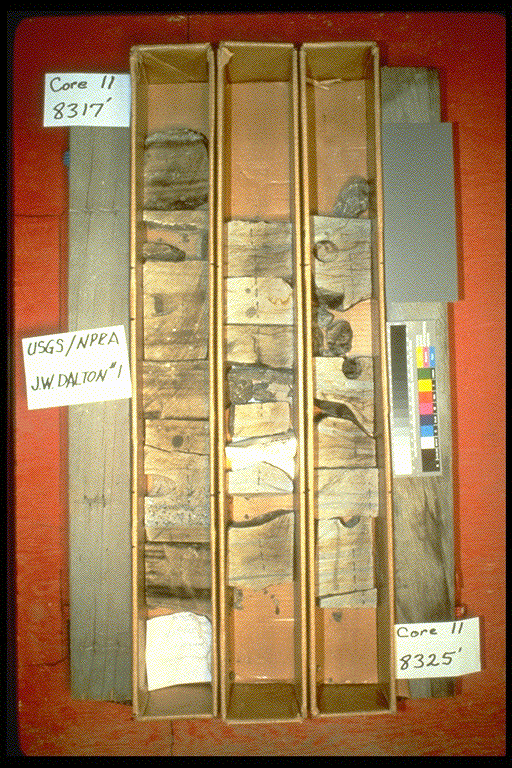 Core 11
8317'
USGS/NPRA
J.W. DALTON #1
Core 11
8325'